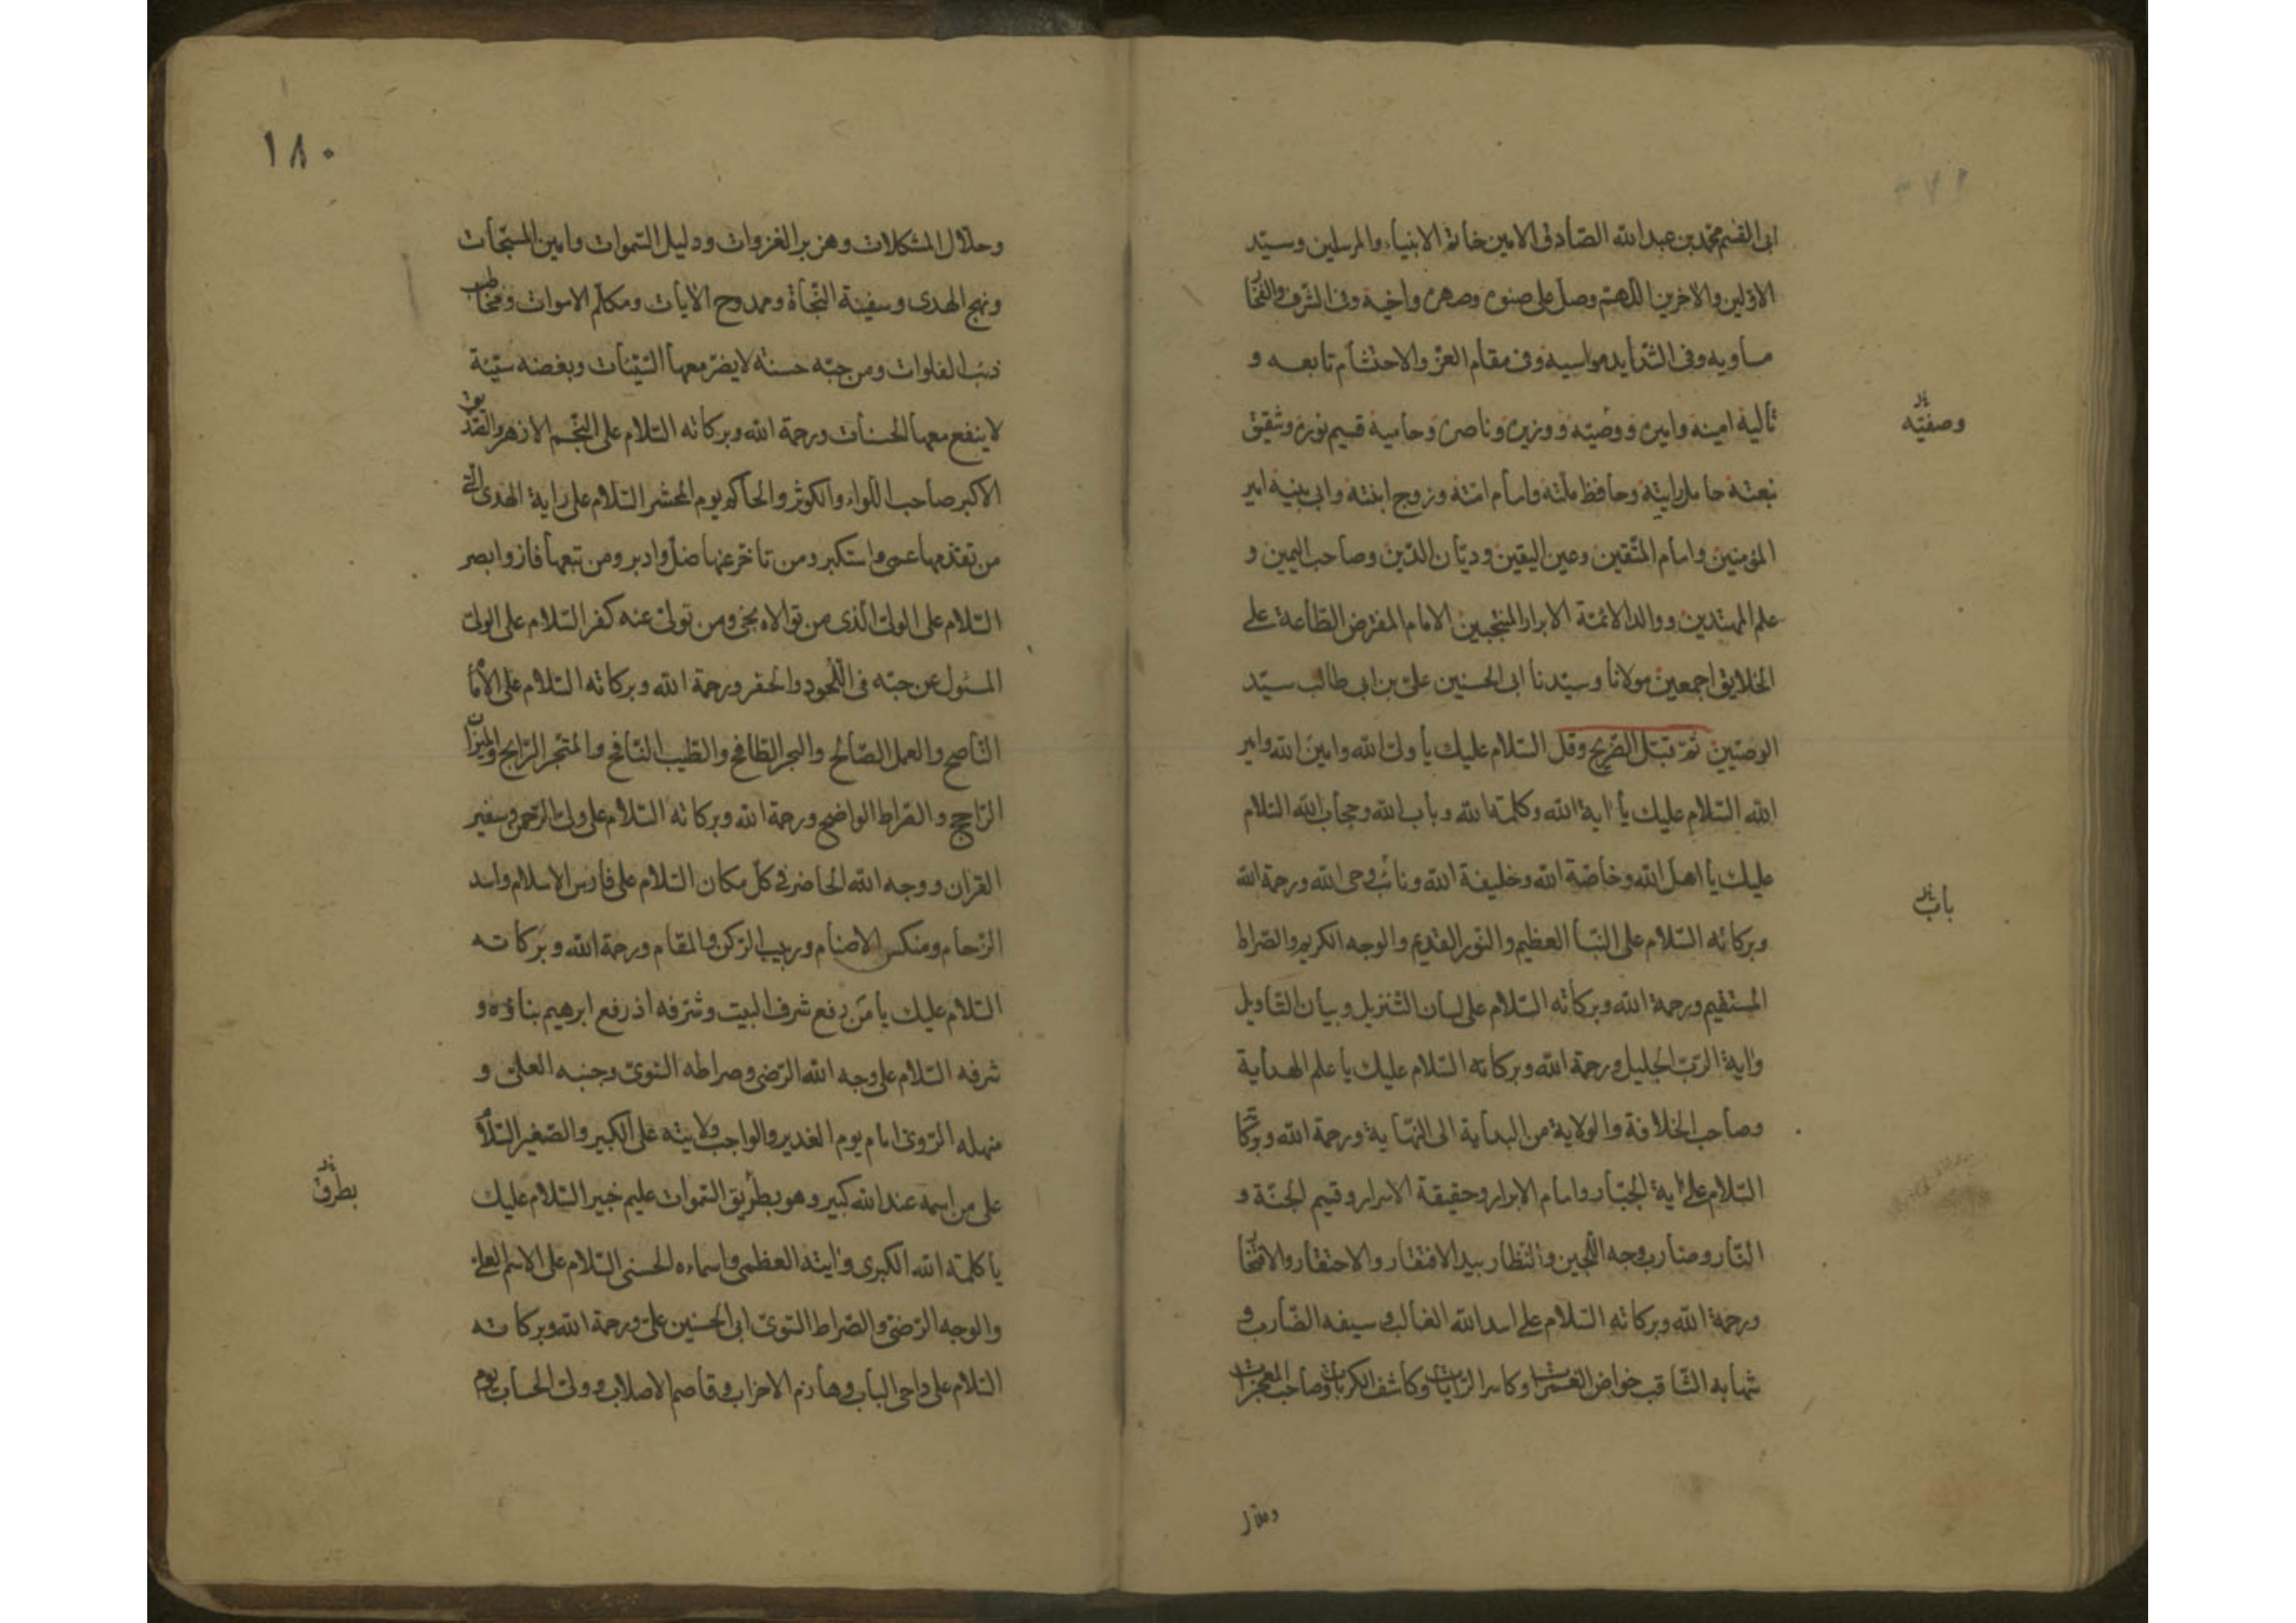 ابى القسم محمد بن عبد الله الصادق الامين خاتم الانبياء والمرسلين وسيد
الاولين والاخرين اللهم وصل على صنوه وصهره واخيه وفى الشرف والفخار
مساويه وفى الشدايد مواسيه وفى مقام العز والاحتشام تابعه و
تاليه امينه وامينه ووصيه ووزيره وناصره وحاميه قسيم نوره وشقيق
وصفيه
نبعته حامل رايته وحافظ ملته وامام امته وزوج ابنته وابى بنيه امير
المؤمنين وامام المتقين وعين اليقين وديان الدين وصاحب اليمين و
علم المهتدين ووالد الائمة الابرار المنتجبين الامام المفترض الطاعة على
الخلايق اجمعين مولانا وسيدنا ابى الحسنين على بن ابى طالب سيد
الوصيين ثم تقبل الضريح وقل السلام عليك يا ولى الله وامين الله وامير
الله السلام عليك يا اية الله وكلمة الله وباب الله وحجاب الله السلام
عليك يا اهل الله وخاصة الله وخليفة الله ونائب وحى الله ورحمة الله
باب
وبركاته السلام على النبأ العظيم والنور القديم والوجه الكريم والصراط
المستقيم ورحمة الله وبركاته السلام على لسان التنزيل وبيان التاويل
واية الرب الجليل ورحمة الله وبركاته السلام عليك يا علم الهداية
وصاحب الخلافة والولاية من البداية الى النهاية ورحمة الله وبركاته
السلام على اية الجبار وامام الابرار وحقيقة الاسرار وقسيم الجنة و
النار وضارب وجه اللجين والنظار بيد الافتقار والاحتقار والامتحان
ورحمة الله وبركاته السلام على اسد الله الغالب وسيفه الضارب و
شهابه الثاقب خواض الغمرات وكاسر الرايات وكاشف الكربات وصاحب المعجزات
وحلال
١٨٠
وحلال المشكلات وهزبر الغزوات ودليل السموات وامين المسبحات
ونهج الهدى وسفينة النجاة وممدوح الايات ومكلم الاموات ومخاطب
ذئب الفلوات ومن حبه حسنة لا يضر معها السيئات وبغضه سيئة
لا ينفع معها الحسنات ورحمة الله وبركاته السلام على النجم الازهر والصديق
الاكبر صاحب اللواء والكوثر والحاكم يوم المحشر السلام على راية الهدى التى
من تقدمها عمى واستكبر ومن تاخر عنها ضل وادبر ومن تبعها فاز وابصر
السلام على الولى الذى من توالاه نجى ومن تولى عنه كفر السلام على الولى
المسئول عن حبه فى اللحود والحفر ورحمة الله وبركاته السلام على الامام
الناصح والعمل الصالح والبحر الطافح والطيب النافح والمتجر الرابح والميزان
الراجح والصراط الواضح ورحمة الله وبركاته السلام على ولى الرحمن وسفير
القران ووجه الله الحاضر فى كل مكان السلام على فارس الاسلام واسد
الزحام ومنكس الاصنام وربيب الركن والمقام ورحمة الله وبركاته
السلام عليك يا من رفع شرف البيت وشرفه اذ رفع ابرهيم بناؤه و
شرفه السلام على وجه الله الرضى وصراطه السوى وجنبه العلى و
منهله الروى امام يوم الغدير والواجب ولايته على الكبير والصغير السلام
على من اسمه عند الله كبير وهو بطريق السموات عليم خبير السلام عليك
بطرق
يا كلمة الله الكبرى وايته العظمى واسماءه الحسنى السلام على الاسم العلى
والوجه الرضى والصراط السوى ابى الحسنين على ورحمة الله وبركاته
السلام على داحى الباب وهازم الاحزاب وقاصم الاصلاب وولى الحساب يوم